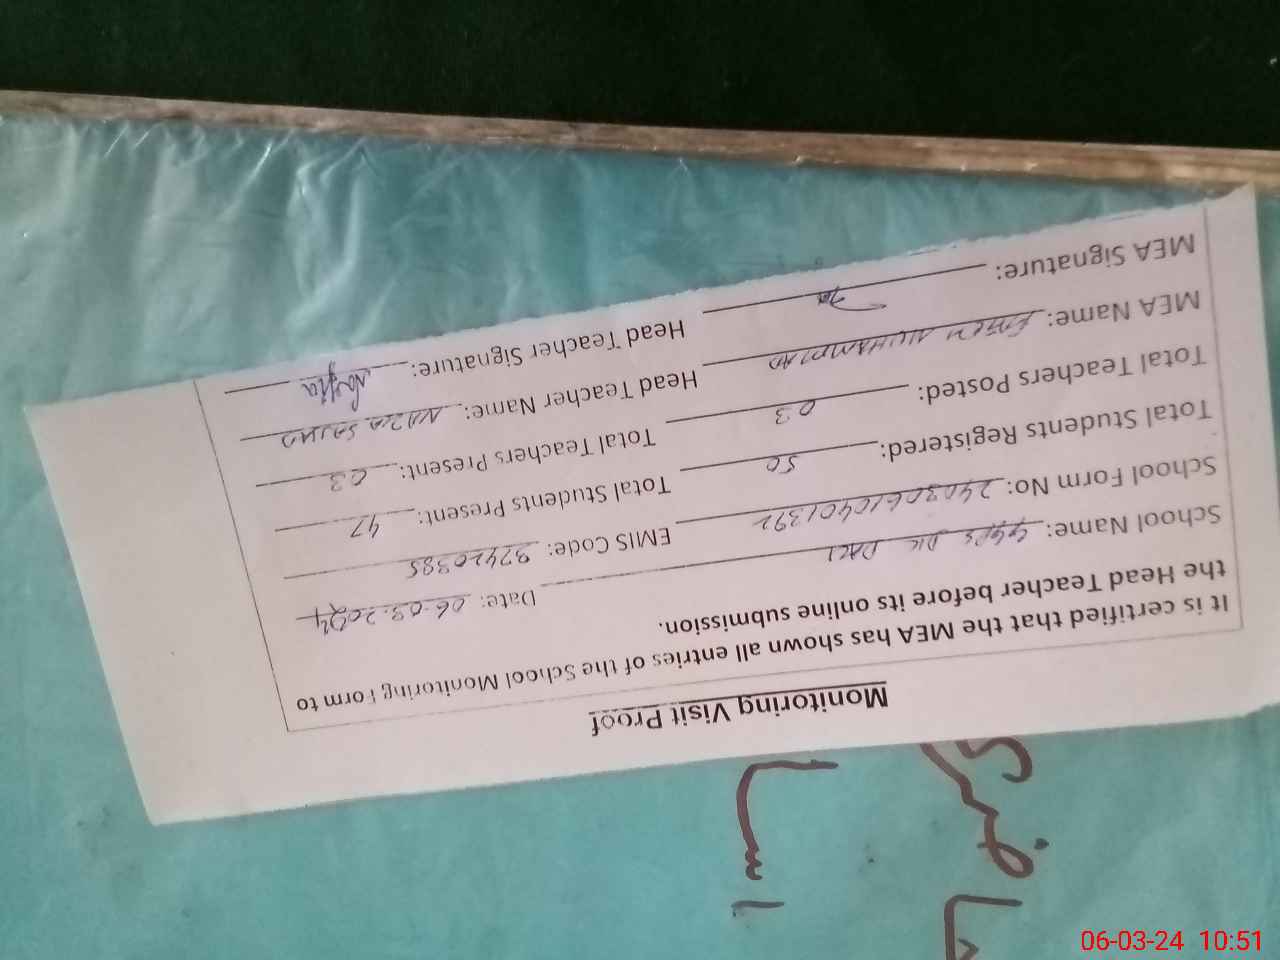 Monitoring Visit Proof
It is certified that the MEA has shown all entries of the School Monitoring Form to
the Head Teacher before its online submission.
School Name: GGPS DK Date: 06.03.2024
School Form No: 24030610401392 EMIS Code: 37420385
Total Students Registered: 50 Total Students Present: 47
Total Teachers Posted: 03 Total Teachers Present: 03
MEA Name: MUHAMMAD Head Teacher Name: NAZIA SAJJAD
MEA Signature: Head Teacher Signature: Nazia
06-03-24 10:51